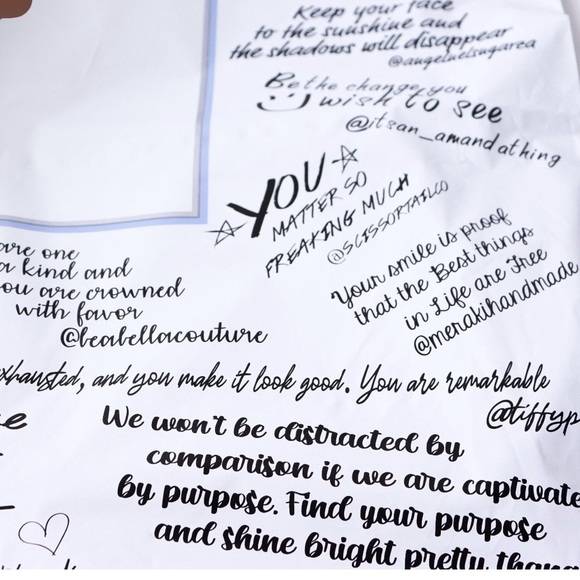 Keep your face
to the sunshine and
the shadows will disappear
@angelnelsugarea
Be the change you
wish to see
@itsan_amandathing
YOU
MATTER SO
FREAKING MUCH
@SCISSORTAILCO
Your smile is proof
that the Best things
in Life are Free
@merakihandmade
are one
a kind and
ou are crowned
with favor
@beabellacouture
exhausted, and you make it look good. You are remarkable
@tiffyp
e
We won't be distracted by
comparison if we are captivate
by purpose. Find your purpose
and shine bright pretty thang